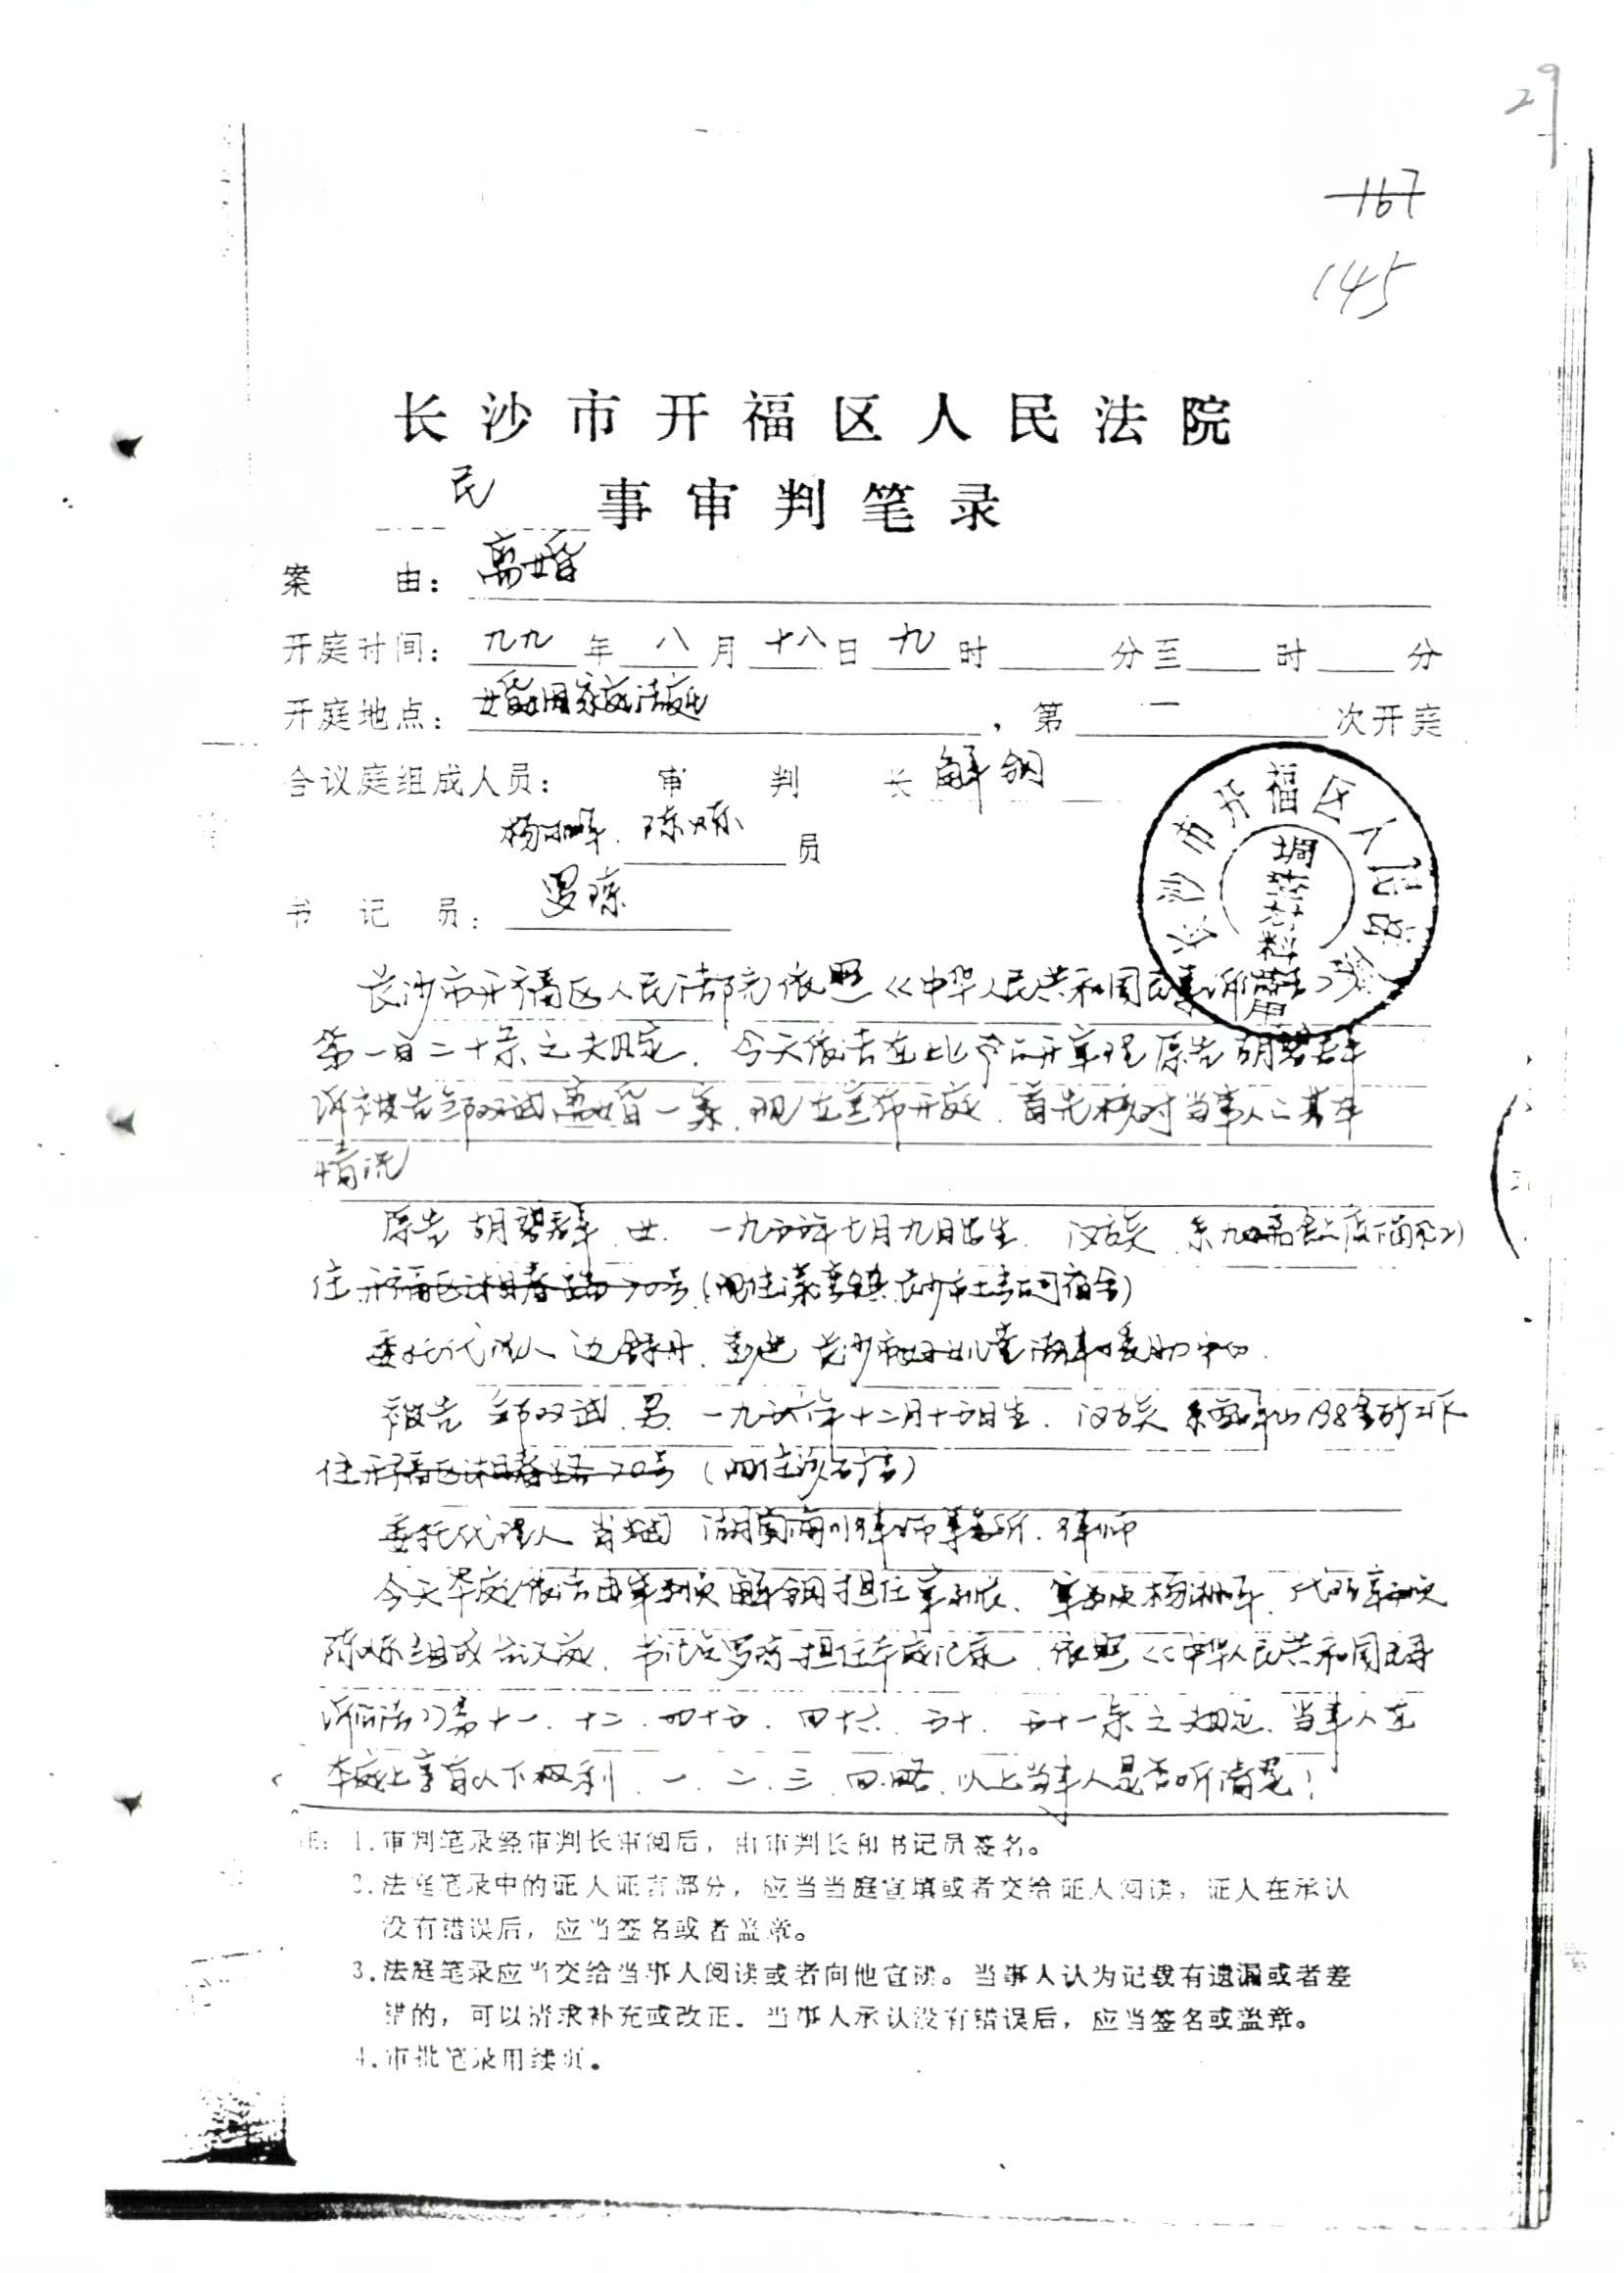 29
167
145
长沙市开福区人民法院
民事审判笔录
案 由：离婚
开庭时间：九九年八月十八日九时 分至 时 分
开庭地点：婚姻家庭法庭，第 一 次开庭
合议庭组成人员： 审 判 长 解钢
杨 陈 员
书 记 员：罗
长沙市开福区人民法院
调 材料 用
长沙市开福区人民法院依照《中华人民共和国民事诉讼法》
第一百二十条之规定，今天依法在此公开审理原告胡碧群
诉被告邹双武离婚一案，现在宣布开庭，首先核对当事人之基本
情况
原告 胡碧群，女，一九五 年七月九日出生，汉族，系九 店
住开福区湘春路70号（现住 镇长沙市 公司宿舍）
委托代理人 边 丹、彭 长沙市妇女儿童 事 援助中心
被告 邹双武，男，一九五六年十二月十五日生，汉族，系 198
住开福区湘春路70号（现住 ）
委托代理人 肖 湖南海川律师事务所，律师
今天本庭依法由审判员解钢担任审判长、审判员杨 、代理审判员
陈 组成合议庭，书记员罗 担任本庭记录，依照《中华人民共和国民事
诉讼法》第十一、十二、四十五、四十六、五十、五十一条之规定，当事人在
本庭上享有以下权利，一、二、三、四、略，以上当事人是否听清楚？
注：1.审判笔录经审判长审阅后，由审判长和书记员签名。
2.法庭笔录中的证人证言部分，应当当庭宣读或者交给证人阅读，证人在承认
没有错误后，应当签名或者盖章。
3.法庭笔录应当交给当事人阅读或者向他宣读。当事人认为记载有遗漏或者差
错的，可以请求补充或改正。当事人承认没有错误后，应当签名或盖章。
4.审批笔录用续页。